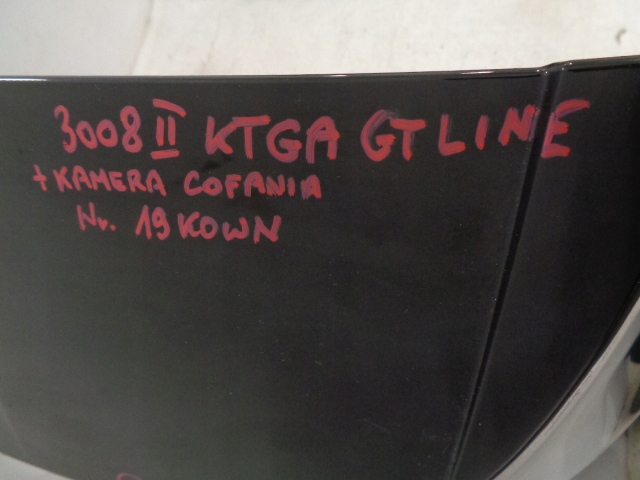 3008 II KTGA GT LINE
+ KAMERA COFANIA
Nr. 19KOWN